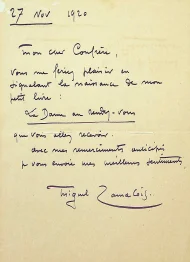 27 Nov 1920
Mon cher Confrère,
vous me feriez plaisir en
signalant la naissance de mon
petit livre :
La Dame au rendez-vous
que vous allez recevoir.
avec mes remerciements anticipés
je vous envoie mes meilleurs sentiments.
Miguel Zamacoïs.